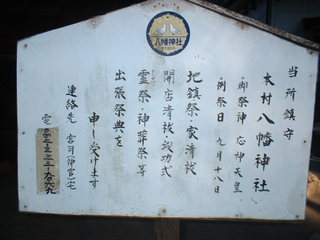 八幡神社
当所鎮守
木村八幡神社
御祭神 応神天皇
例祭日 九月十八日
地鎮祭・家清祓
開店清祓・竣功式
霊祭・神葬祭等
出張祭典を
申し受けます
連絡先 宮司(神官)宅
電